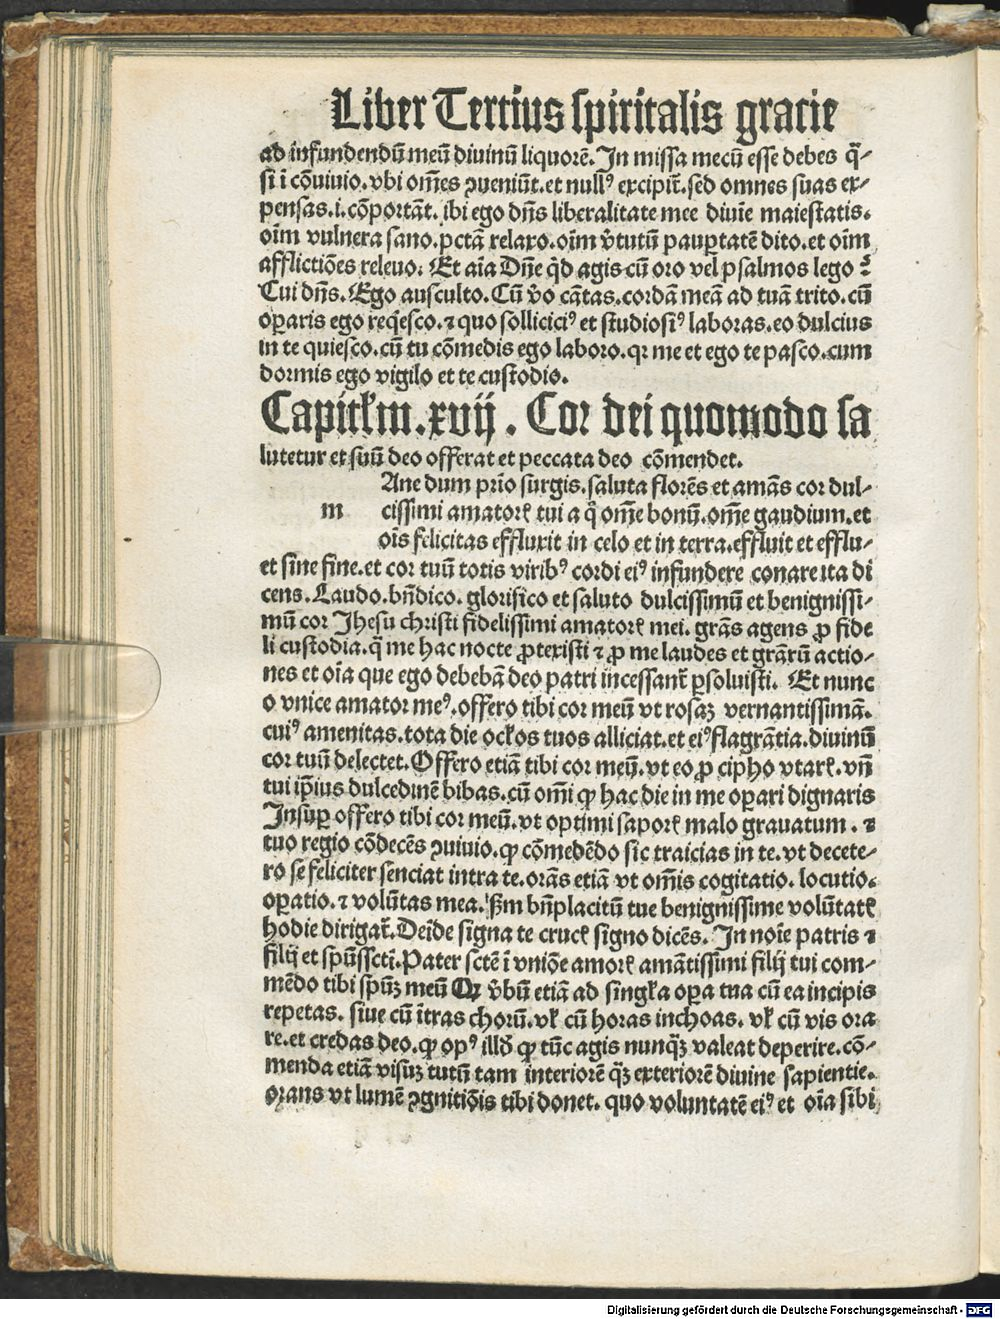 Liber Tertius spiritalis gracie
ad infundendū meū diuinū liquorē. In missa mecū esse debes q̄-
si ī cōuiuio. vbi om̄es ꝯueniūt. et null᾽ excipit̄. sed omnes suas ex-
pensas. i. cōportāt. ibi ego dn̄s liberalitate mee diuīe maiestatis.
oīm vulnera sano. pctā relaxo. oīm v̄tutū pauꝑtatē dito. et oīm
afflictiōes releuo. Et aīa Dn̄e qͥd agis cū oro vel psalmos lego ?
Cui dn̄s. Ego ausculto. Cū v̄o cātas. cordā meā ad tuā trito. cū
oꝑaris ego reqͥesco. ⁊ quo sollicici᾽ et studiosi᾽ laboras. eo dulcius
in te quiesco. cū tu cōmedis ego laboro. qꝛ me et ego te pasco. cum
dormis ego vigilo et te custodio.
Capitłm. xvij. Cor dei quomodo sa
lutetur et suū deo offerat et peccata deo cōmendet.
Ane dum prīo surgis. saluta florēs et amās cor dul-
m cissimi amatorꝭ tui a q̄ om̄e bonū. om̄e gaudium. et
oīs felicitas effluxit in celo et in terra. effluit et efflu-
et sine fine. et cor tuū totis virib᾽ cordi ei᾽ infundere conare ita di
cens. Laudo. bn̄dico. glorifico et saluto dulcissimū et benignissi-
mū cor Jhesu christi fidelissimi amatorꝭ mei. grās agens ꝓ fide
li custodia. q̄ me hac nocte ꝓtexisti ⁊ ꝓ me laudes et grārū actio-
nes et oīa que ego debebā deo patri incessant̄ ꝑsoluisti. Et nunc
o vnice amator me᾽. offero tibi cor meū vt rosaꝫ vernantissimā.
cui᾽ amenitas. tota die ocłos tuos alliciat. et ei᾽ flagrātia. diuinū
cor tuū delectet. Offero etiā tibi cor meū. vt eo ꝓ cipho vtarꝭ. vn̄
tui ip̄ius dulcedinē bibas. cū om̄i ꝙ hac die in me oꝑari dignaris
Insuꝑ offero tibi cor meū. vt optimi saporꝭ malo grauatum. ⁊
tuo regio cōdecēs ꝯuiuio. ꝙ cōmedēdo sic traicias in te. vt decete-
ro se feliciter senciat intra te. orās etiā vt om̄is cogitatio. locutio.
oꝑatio. ⁊ volūtas mea. ẜm bn̄placitū tue benignissime volūtatꝭ
hodie dirigat̄. Deīde signa te crucꝭ signo dicēs. In noīe patris ⁊
filij et spūssctī. Pater sctē ī vniōe amorꝭ amātissimi filij tui com-
mēdo tibi spūꝫ meū Qꝫ v̄bū etiā ad singła oꝑa tua cū ea incipis
repetas. siue cū ītras chorū. vł cū horas inchoas. vł cū vis ora
re. et credas deo. ꝙ op᾽ illđ ꝙ tūc agis nunqꝫ valeat deperire. cō-
menda etiā visuꝫ tutū tam interiorē qꝫ exteriorē diuine sapientie.
orans vt lumē ꝯgnitiōis tibi donet. quo voluntatē ei᾽ et oīa sibi
Digitalisierung gefördert durch die Deutsche Forschungsgemeinschaft - DFG